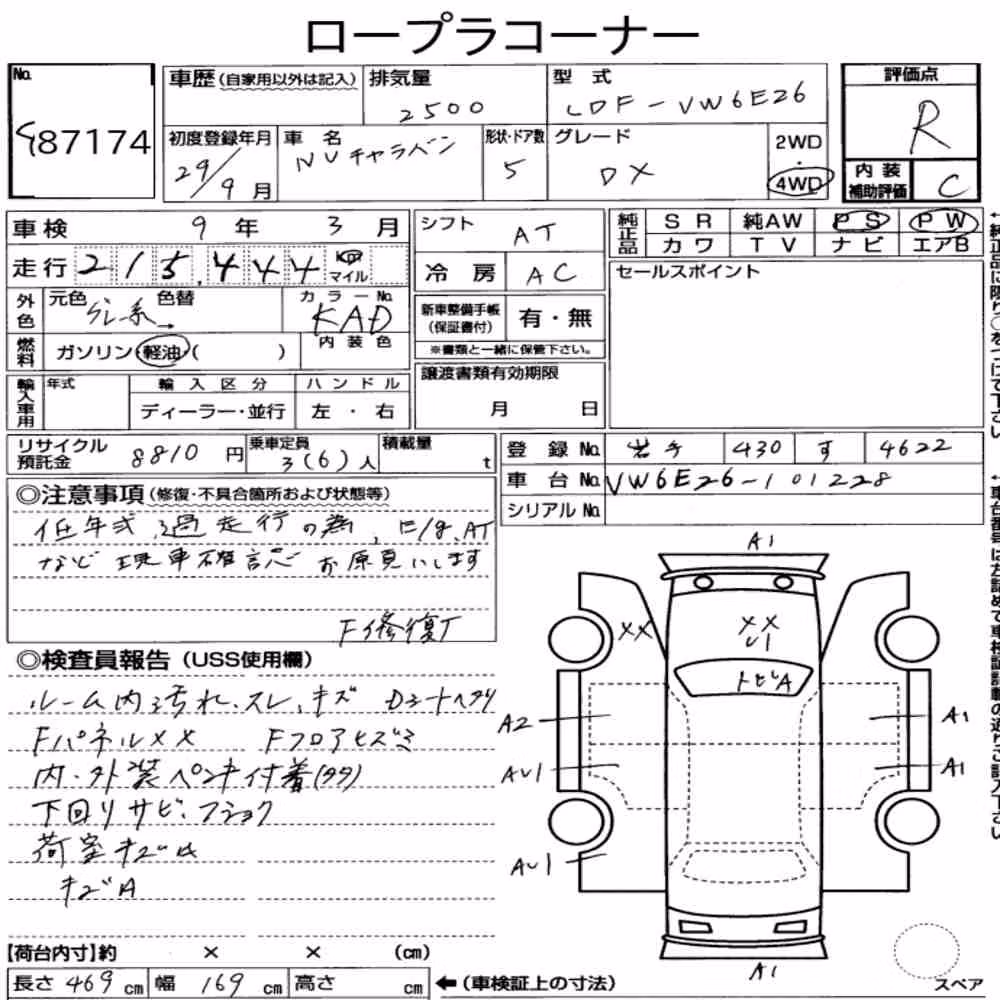 ロープラコーナー
No.
87174
車歴 (自家用以外は記入)
排気量
2500
型式
LDF-VW6E26
評価点
R
初度登録年月
29/9月
車名
NVキャラバン
形状・ドア数
5
グレード
DX
2WD
・
4WD
内装
補助評価
C
車検 9年 3月
シフト AT
純正品
SR 純AW PS PW
カワ TV ナビ エアB
走行 215,444 km マイル
冷房 AC
セールスポイント
外色
元色 グレー系 色替 →
カラーNo.
KAD
新車整備手帳
(保証書付)
有・無
※書類と一緒に保管下さい。
燃料
ガソリン・軽油・( )
内装色
輸入車用
年式
輸入区分
ディーラー・並行
ハンドル
左・右
譲渡書類有効期限
月 日
リサイクル
預託金
8810円
乗車定員
3(6)人
積載量
t
登録No. 岩手 430 す 4622
車台No. VW6E26-101228
シリアルNo.
◎注意事項 (修復・不具合箇所および状態等)
低年式、過走行の為、E/g、AT
など現車確認お願いします
F修復了
◎検査員報告 (USS使用欄)
ルーム内汚れ、スレ、キズ Dシートヘタリ
FパネルXX Fフロアヒズミ
内・外装ペンキ付着(タタ)
下回りサビ、フショク
荷室キズ
キズA
【荷台内寸】約 × × (cm)
長さ 469 cm 幅 169 cm 高さ cm
←(車検証上の寸法)
A1
XX
XX
U1
トビA
A2
AU1
AU1
A1
A1
A1
スペア
←純正品に限り○をつけて下さい
←車台番号は左詰めで車検証記載の通りご記入下さい